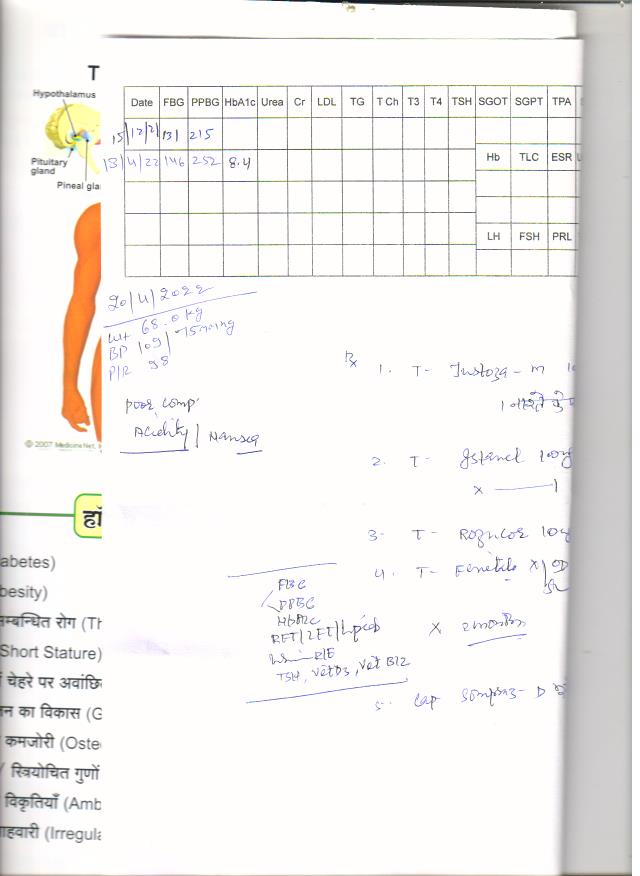 T
Hypothalamus
Pituitary
gland
Pineal gla
© 2007 MedicineNet, I
हॉ
abetes)
besity)
म्बन्धित रोग (Th
Short Stature)
चेहरे पर अवांछि
न का विकास (G
कमजोरी (Oste
/ स्त्रियोचित गुणों
विकृतियाँ (Amb
ाहवारी (Irregula
Date FBG PPBG HbA1c Urea Cr LDL TG T Ch T3 T4 TSH SGOT SGPT TPA
15/12/21 131 215
13/4/22 146 252 8.4
Hb TLC ESR
LH FSH PRL
20/4/2022
Wt 68.0 kg
BP 109/75 mmHg
P/R 98
poor comp
Acidity / Nausea
Rx 1. T-
2. T-
x 1
3. T- Rozucor 10
4. T- x OD
FBG
PPBG
HbA1c
RFT/LFT/Lipid x 2 months
R/E
TSH, Vit D3, Vit B12
5. Cap Sompraz-D